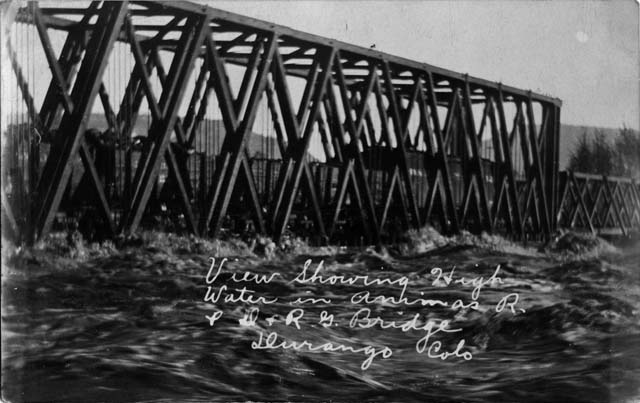 View Showing High
Water in Animas R.
& D & R G. Bridge
Durango Colo